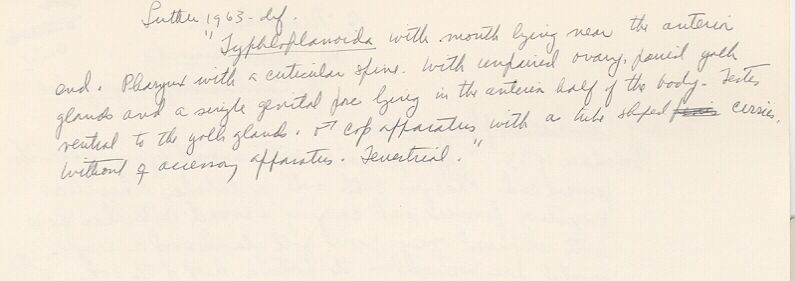 Luther 1963 - def.
"Typhloplanoida with mouth lying near the anterior
end. Pharynx with a cuticular spine. With unpaired ovary, paired yolk
glands and a single genital pore lying in the anterior half of the body - Testes
ventral to the yolk glands. ♂ cop apparatus with a tube shaped penis cirrus.
Without ♀ accessory apparatus. Terrestrial."